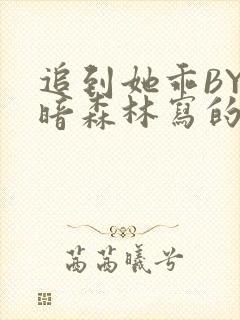 追到她乖BY
暗森林寫的
茜茜曦兮